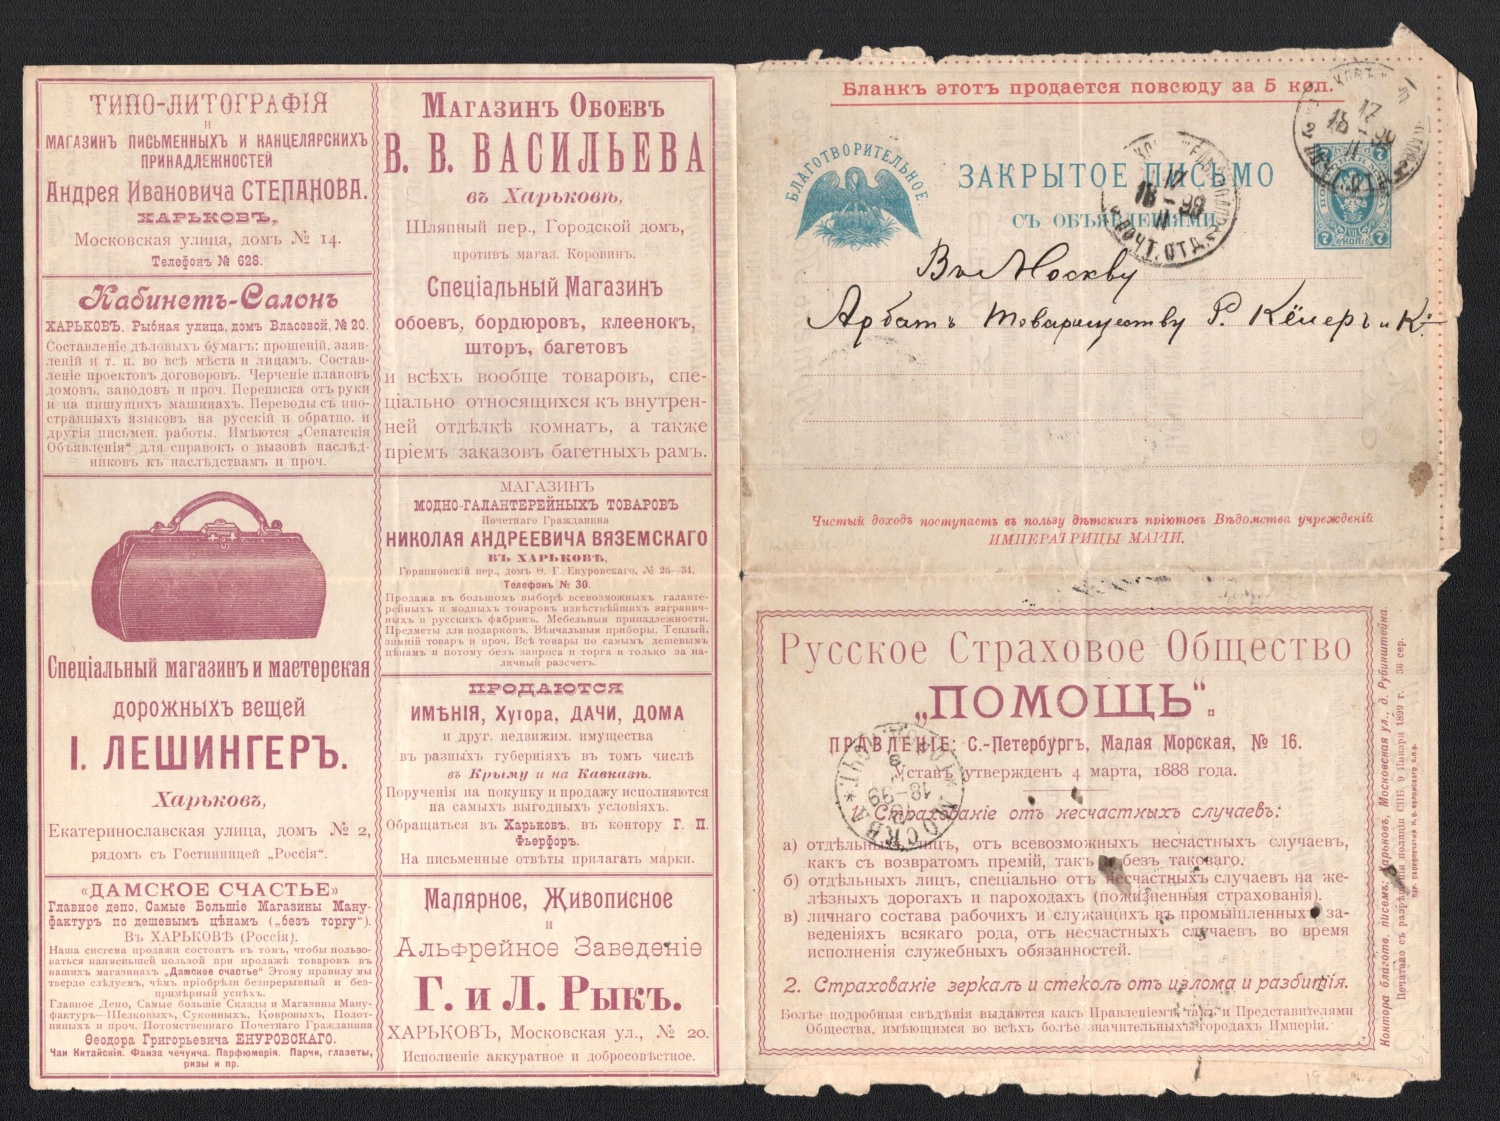 ТИПО-ЛИТОГРАФІЯ
И
МАГАЗИНЪ ПИСЬМЕННЫХЪ И КАНЦЕЛЯРСКИХЪ
ПРИНАДЛЕЖНОСТЕЙ
Андрея Ивановича СТЕПАНОВА.
ХАРЬКОВЪ,
Московская улица, домъ № 14.
Телефонъ № 628.
Кабинетъ-Салонъ
ХАРЬКОВЪ, Рыбная улица, домъ Власовой, № 20.
Составленіе дѣловыхъ бумагъ: прошеній, заяв-
леній и т. п. во всѣ мѣста и лицамъ. Состав-
леніе проектовъ договоровъ. Черченіе плановъ
домовъ, заводовъ и проч. Переписка отъ руки
и на пишущихъ машинахъ. Переводы съ ино-
странныхъ языковъ на русскій и обратно. и
другія письмен. работы. Имѣются „Сенатскія
Объявленія“ для справокъ о вызовѣ наслѣд-
никовъ къ наслѣдствамъ и проч.
Спеціальный магазинъ и мастерская
дорожныхъ вещей
І. ЛЕШИНГЕРЪ.
Харьковъ,
Екатеринославская улица, домъ № 2,
рядомъ съ Гостинницей „Россія“.
«ДАМСКОЕ СЧАСТЬЕ»
Главное депо, Самые Большіе Магазины Ману-
фактуръ по дешевымъ цѣнамъ („безъ торгу“).
Въ ХАРЬКОВѢ (Россія).
Наша система продажи состоитъ въ томъ, чтобы пользо-
ваться наименьшей пользой при продажѣ товаровъ въ
нашихъ магазинахъ „Дамское счастье“ Этому правилу мы
твердо слѣдуемъ, чѣмъ пріобрѣли безпрерывный и без-
примѣрный успѣхъ.
Главное Депо, Самые большіе Склады и Магазины Ману-
фактуръ—Шелковыхъ, Суконныхъ, Ковровыхъ, Полот-
няныхъ и проч. Потомственнаго Почетнаго Гражданина
Ѳеодора Григорьевича ЕНУРОВСКАГО.
Чаи Китайскія. Фанза чечунча. Парфюмерія. Парчи, глазеты,
ризы и пр.
МАГАЗИНЪ ОБОЕВЪ
В. В. ВАСИЛЬЕВА
въ Харьковѣ,
Шляпный пер., Городской домъ,
противъ магаз. Коровин.
Спеціальный Магазинъ
обоевъ, бордюровъ, клеенокъ,
шторъ, багетовъ
и всѣхъ вообще товаровъ, спе-
ціально относящихся къ внутрен-
ней отдѣлкѣ комнатъ, а также
пріемъ заказовъ багетныхъ рамъ.
МАГАЗИНЪ
МОДНО-ГАЛАНТЕРЕЙНЫХЪ ТОВАРОВЪ
Почетнаго Гражданина
НИКОЛАЯ АНДРЕЕВИЧА ВЯЗЕМСКАГО
ВЪ ХАРЬКОВѢ,
Горяиновскій пер., домъ Ѳ. Г. Енуровскаго, № 26—34.
Телефонъ № 30.
Продажа въ большомъ выборѣ всевозможныхъ галанте-
рейныхъ и модныхъ товаровъ извѣстнѣйшихъ заграничн-
ыхъ и русскихъ фабрикъ. Мебельныя принадлежности.
Предметы для подарковъ. Вѣнчальныя приборы. Теплый,
зимній товаръ и проч. Всѣ товары по самымъ дешевымъ
цѣнамъ и потому безъ запроса и торга и только за на-
личный разсчетъ.
ПРОДАЮТСЯ
ИМѢНІЯ, Хутора, ДАЧИ, ДОМА
и друг. недвижим. имущества
въ разныхъ губерніяхъ въ томъ числѣ
въ Крыму и на Кавказѣ.
Порученія на покупку и продажу исполняются
на самыхъ выгодныхъ условіяхъ.
Обращаться въ Харьковъ, въ контору Г. П.
Фьерфоръ.
На письменные отвѣты прилагать марки.
Малярное, Живописное
и
Альфрейное Заведеніе
Г. и Л. Рыкъ.
ХАРЬКОВЪ, Московская ул., № 20.
Исполненіе аккуратное и добросовѣстное.
Бланкъ этотъ продается повсюду за 5 коп.
БЛАГОТВОРИТЕЛЬНОЕ
ЗАКРЫТОЕ ПИСЬМО
СЪ ОБЪЯВЛЕНІЯМИ
Въ Москву
Арбатъ Товариществу Р. Кёлеръ и К°
Чистый доходъ поступаетъ въ пользу дѣтскихъ пріютовъ Вѣдомства учрежденій
ИМПЕРАТРИЦЫ МАРІИ.
Русское Страховое Общество
„ПОМОЩЬ“.
ПРАВЛЕНІЕ: С.-Петербургъ, Малая Морская, № 16.
Уставъ утвержденъ 4 марта, 1888 года.
1. Страхованіе отъ несчастныхъ случаевъ:
а) отдѣльныхъ лицъ, отъ всевозможныхъ несчастныхъ случаевъ,
какъ съ возвратомъ премій, такъ и безъ таковаго.
б) отдѣльныхъ лицъ, спеціально отъ несчастныхъ случаевъ на же-
лѣзныхъ дорогахъ и пароходахъ (пожизненныя страхованія).
в) личнаго состава рабочихъ и служащихъ въ промышленныхъ за-
веденіяхъ всякаго рода, отъ несчастныхъ случаевъ во время
исполненія служебныхъ обязанностей.
2. Страхованіе зеркалъ и стеколъ отъ излома и разбитія.
Болѣе подробныя свѣдѣнія выдаются какъ Правленіемъ такъ и Представителями
Общества, имѣющимся во всѣхъ болѣе значительныхъ городахъ Имперіи.
Контора благотв. писемъ: Харьковъ, Московская ул., д. Рубинштейна.
Печатано съ разрѣшенія полиціи СПБ. 9 Января 1899 г. 36 сер.
МОСКВА
18-99